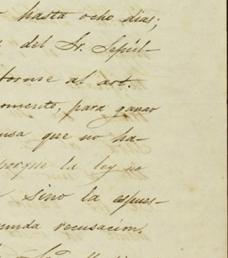 hasta ocho dias;
del Sr. Sepúl-
forme al art.
omento, para ganar
usa que no ha-
porque la ley no
sino la espres-
unda recusacion.